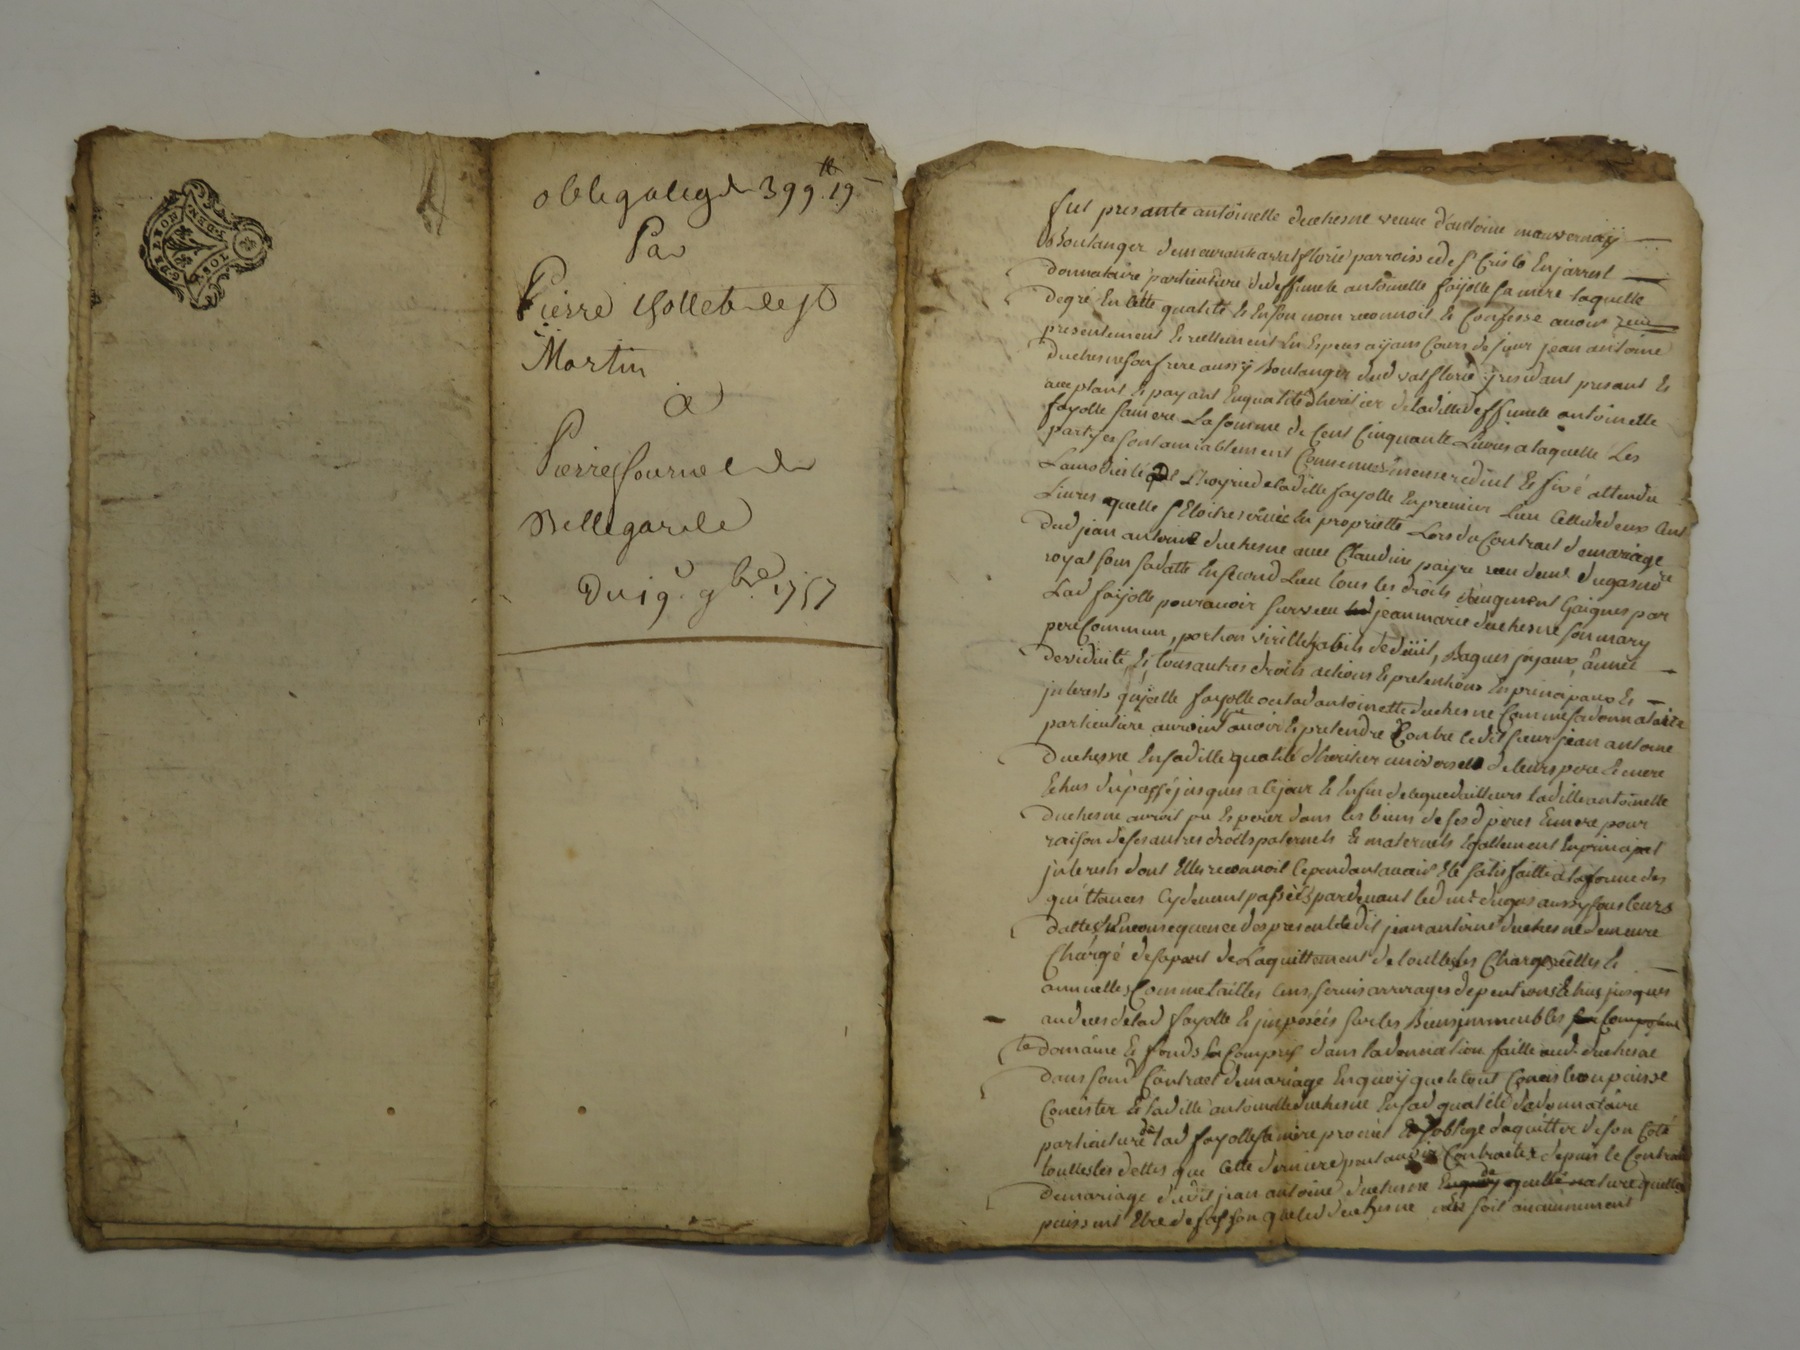 GEN. DE LYON
obligation de 399.tt 19
Par
Pierre de St
Martin
a
Pierre fournel de
Bellegarde
Du 19 9bre 1757
fut presante antoinette duchesne veuve d'antoine mauvernaÿ
Boulanger demeurante a valflorie parroisse de St Cristo En jarrest
donnataire particuliere de deffunete antoinette faÿolle sa mere laquelle
de gré En cette qualité Et En son nom reconnoit Et Confesse avoir receu
presentement Et reellement En Especes aÿans Cours de sieur jean antoine
duchesne son frere aussÿ boulanger dud valflorie ÿ residant presant Et
acceptant Et payant En qualité d'heretier de laditte deffunete antoinette
fayolle sa mere La somme de Cent Cinquante Livres a laquelle Les
parties sont amiablement Convenues reduit Et fixé attendu
de laditte fayolle En premier Lieu Celle de deux Cent
Livres quelle s'Etoit reservée En proprietté Lors du Contract de mariage
dud jean antoine duchesne avec Claudine payre receu dugas nore
royal sous sa datte En second Lieu tous les droits d'augment Gaignes par
Lad faÿolle pour avoir survecu jean marie duchesne son mary
pere Commun, portion virille habits de düil, Bagues joyaux année
de viduité Et tous autres droits actions Et pretentions En principaux Et
jnterests qu'jcelle fayolle ou lad antoinette duchesne Comme sa donnataire
particuliere auroint pu avoir Et pretendre Contre ledit sieur jean antoine
duchesne En sa ditte qualité d'heritier universel de leurs pere Et mere
Echus du passé jusques a Cejour Et Enfin de ce que d'ailleurs laditte antoinette
duchesne auroit pu Esperer dans les biens de sesd peres Et mere pour
raison de ses autres droits paternels Et maternels Egallement En principal
jnterests dont Elle reconnoit Cependant avoir Eté satisfaitte a la forme des
quittances Cy devant passées pardevant led me dugas aussy sous leurs
dattes En consequence des presentes ledit jean antoine duchesne demeure
Chargé de sa part de L'aquittement de touttes les Charges réelles Et
annuelles Comme tailles Cens, servis arrerages de pentions Echus jusques
au deces de lad fayolle Et jmposéés sur les Biens jmmeubles
domaine Et fonds Compris dans la donnation faitte aud. duchesne
dans sond Contract de mariage En quoÿ que le tout Concistte ou puisse
Concister Et laditte antoinette duchesne En sad qualité de donnataire
particuliere de lad fayolle sa mere promet Et s'oblige d'aquitter de son Coté
touttes les dettes que Cette derniere peut avoir Contractée depuis le Contract
de mariage dudit jean antoine duchesne de quelle nature quelles
puissent Etre de fasson que led duchesne n'En soit aucunnement